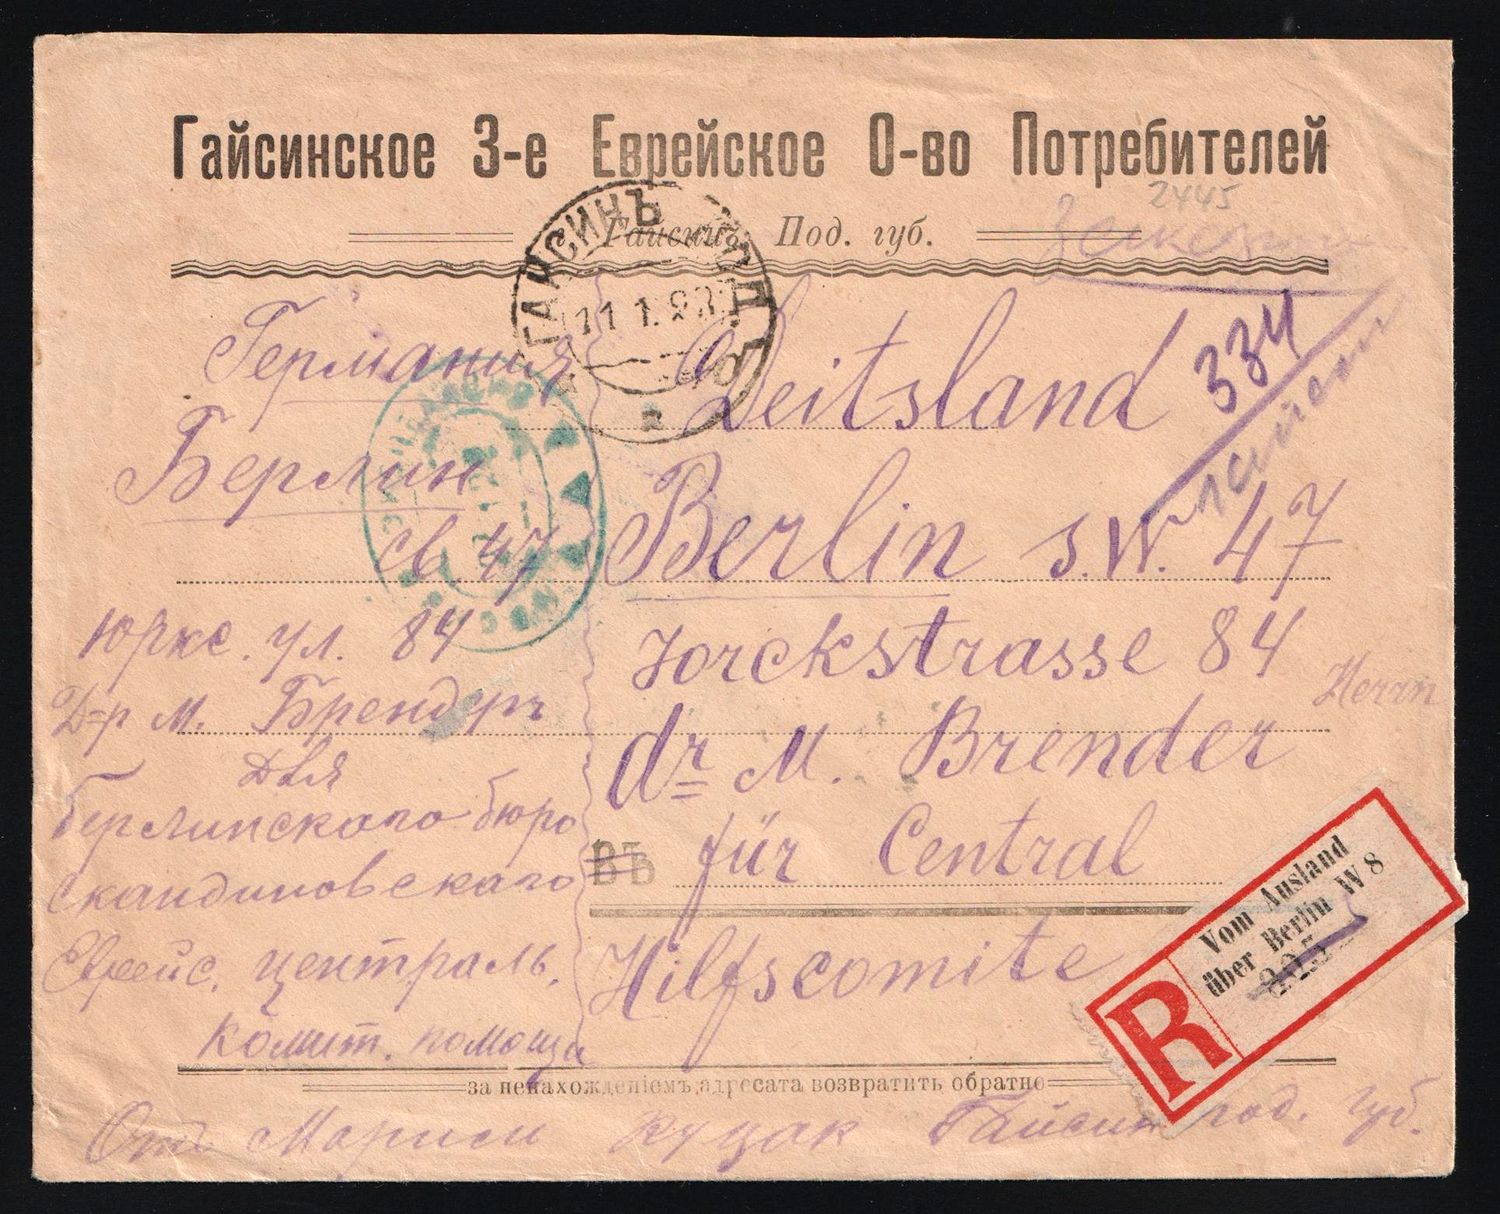 Гайсинское 3-е Еврейское О-во Потребителей
2445
Гайсинъ, Под. губ.
ГАЙСИНЪ ПОД.
11.1.23
Германия
Берлин
св. 47
Юркс. ул. 84
Д-р М. Брендеръ
Для
берлинского бюро
скандиновского
Еврейс. централь.
Комит. помощи
Deitsland
334
Гайсин
Berlin s.W. 47
Jorckstrasse 84
Herrn
dr M. Brender
für Central
Въ
Hilfscomite
R
Vom Ausland
über Berlin W 8
225
за ненахожденіемъ адресата возвратить обратно
От Мариси Куцак Гайсин под. губ.